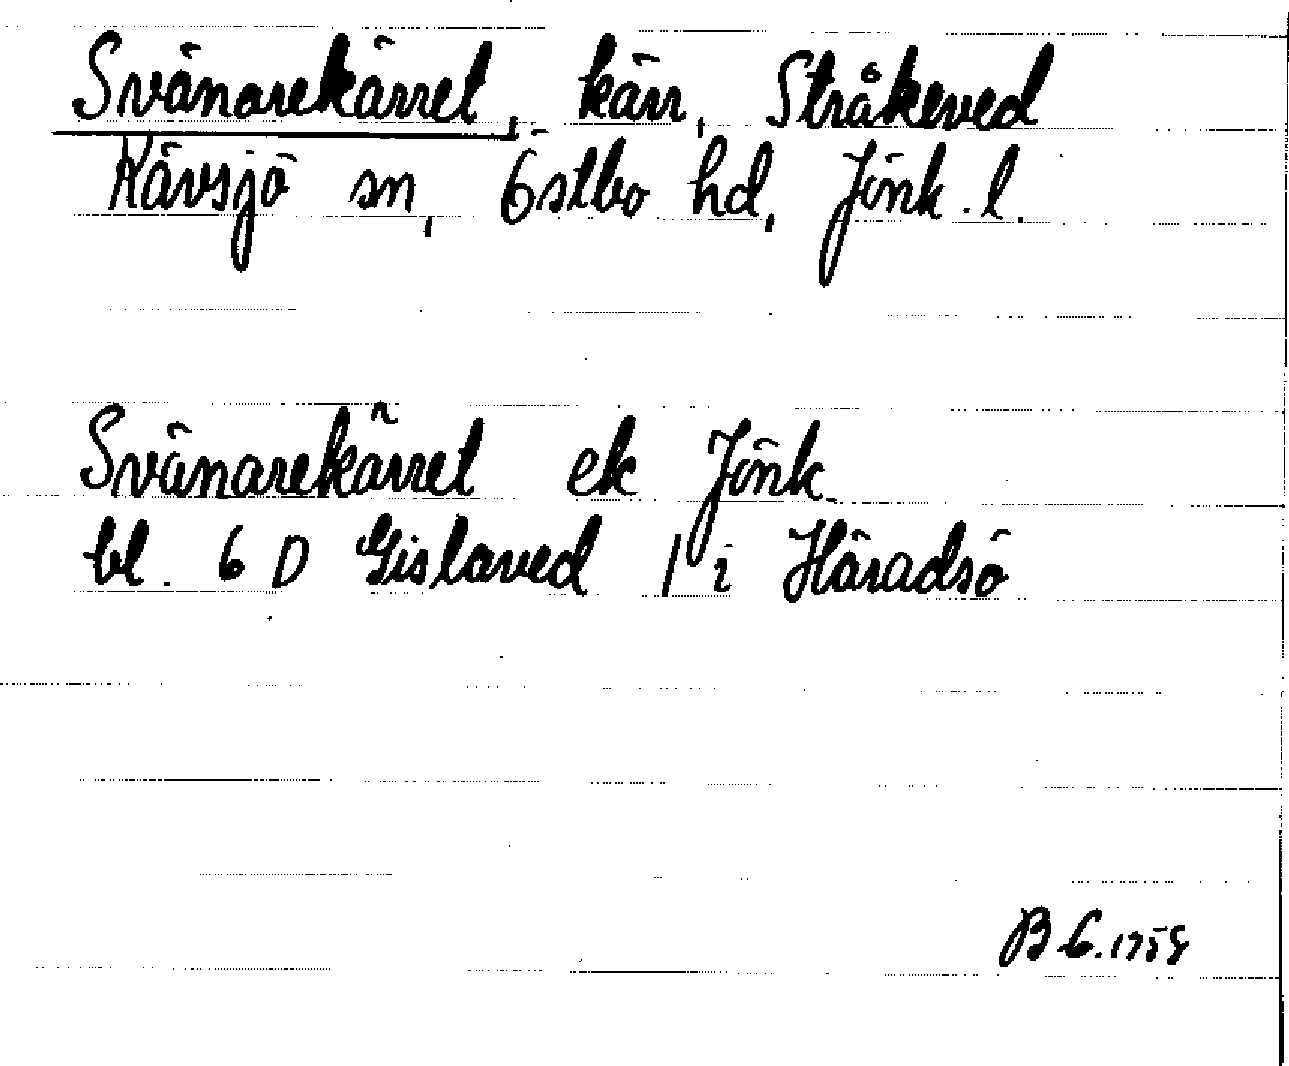 Svänarekärret, kärr, Stråkeved
Kävsjö sn, Östbo hd, Jönk. l.
Svänarekärret ek Jönk
bl. 6 D Gislaved / i Häradsö
B G. 1958